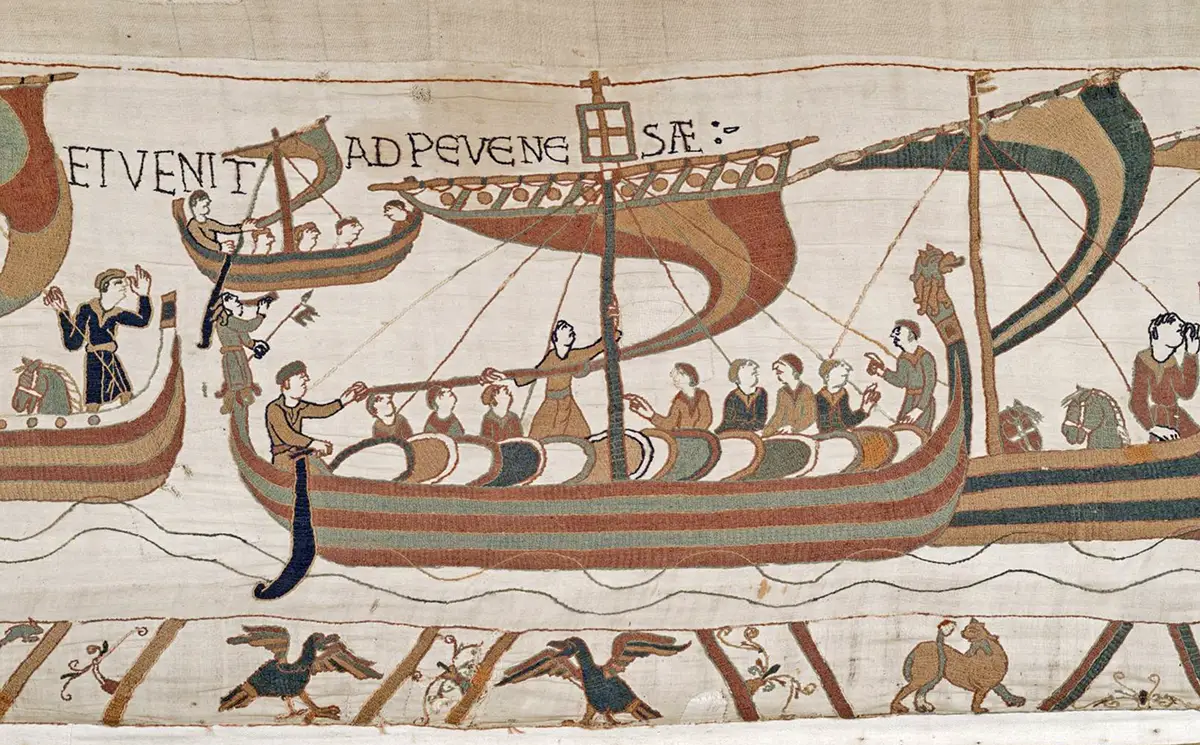 ET VENIT AD PEVENE SÆ:-